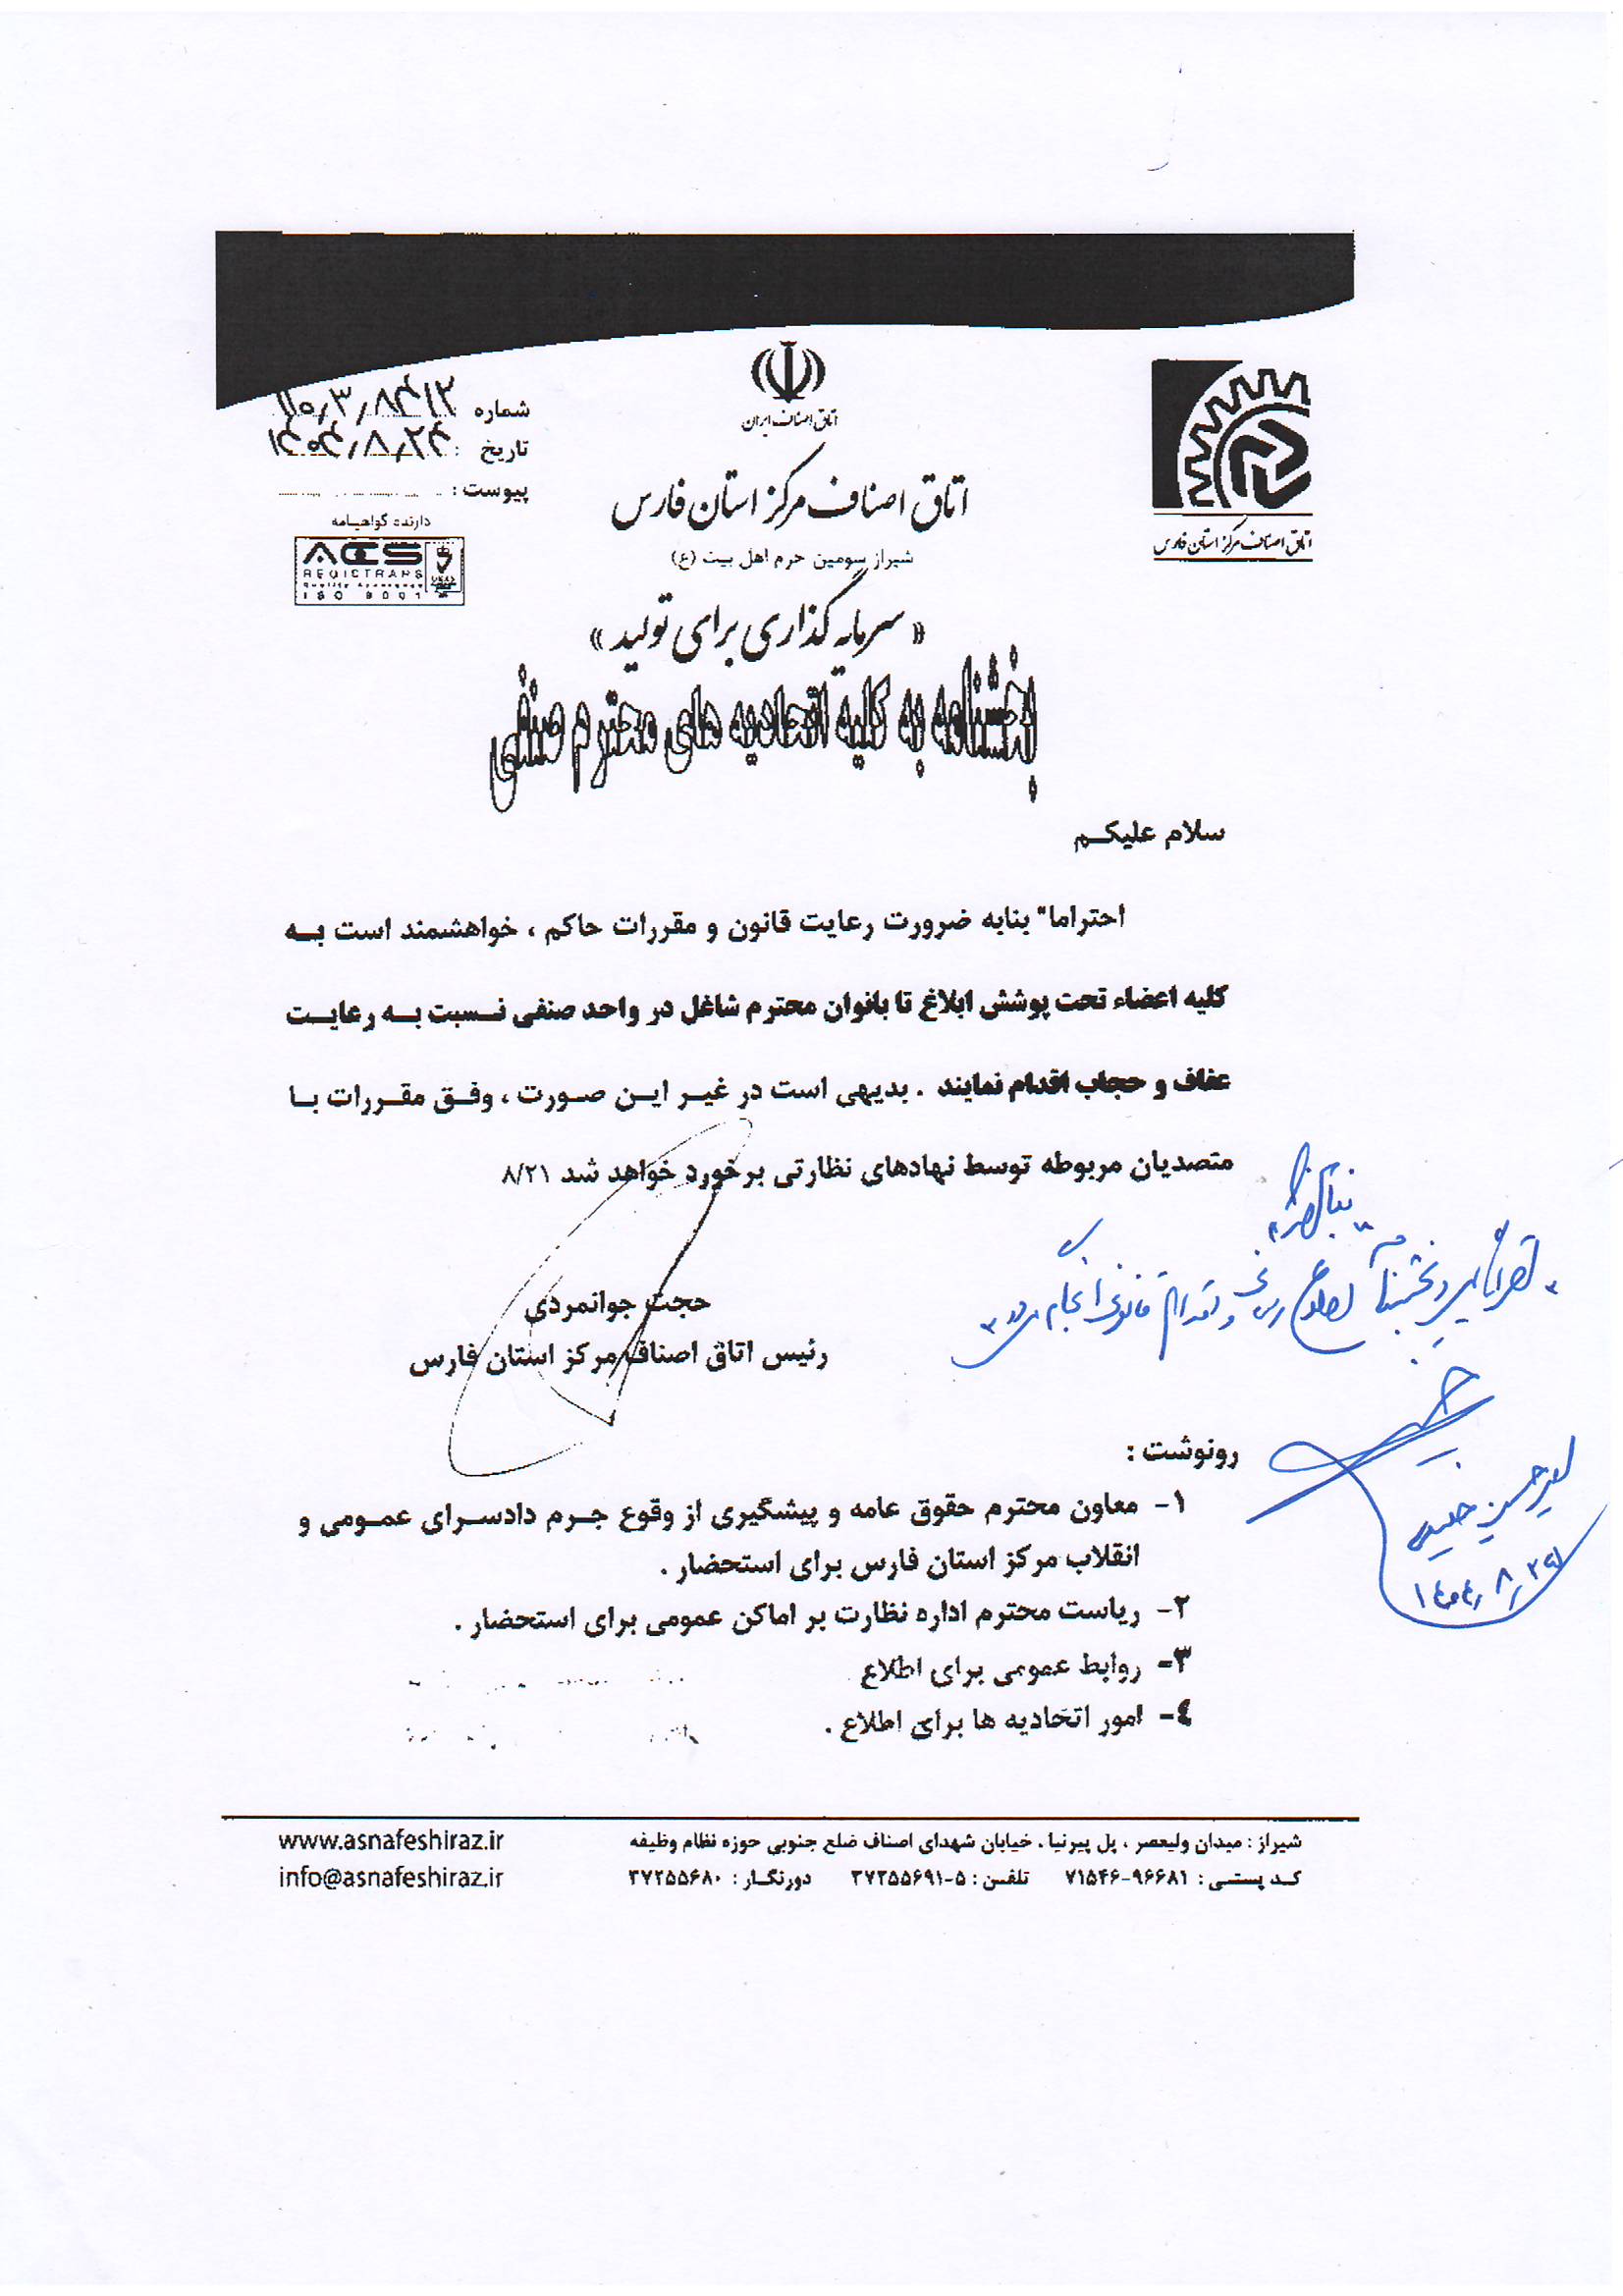 شماره ۱۱۰٫۳٫۸۴۱۲
تاریخ : ۱۴۰۴٫۸٫۲۴
پیوست :
دارنده گواهینامه
ACS
REGISTRARS
Quality Assurance
ISO 9001
UKAS
اتاق اصناف ایران
اتاق اصناف مرکز استان فارس
شیراز سومین حرم اهل بیت (ع)
« سرمایه گذاری برای تولید »
اتاق اصناف مرکز استان فارس
بخشنامه به کلیه اتحادیه های محترم صنفی
سلام علیکم
احتراما" بنابه ضرورت رعایت قانون و مقررات حاکم ، خواهشمند است به
کلیه اعضاء تحت پوشش ابلاغ تا بانوان محترم شاغل در واحد صنفی نسبت به رعایت
عفاف و حجاب اقدام نمایند . بدیهی است در غیر این صورت ، وفق مقررات با
متصدیان مربوطه توسط نهادهای نظارتی برخورد خواهد شد ۸/۲۱
حجت جوانمردی
رئیس اتاق اصناف مرکز استان فارس
اطلاع رسانی و اقدام قانونی انجام
۱۴۰۴٫۸٫۲۹
رونوشت :
۱- معاون محترم حقوق عامه و پیشگیری از وقوع جرم دادسرای عمومی و
انقلاب مرکز استان فارس برای استحضار .
۲- ریاست محترم اداره نظارت بر اماکن عمومی برای استحضار .
۳- روابط عمومی برای اطلاع
٤- امور اتحادیه ها برای اطلاع .
شیراز : میدان ولیعصر ، پل پیرنیا ، خیابان شهدای اصناف ضلع جنوبی حوزه نظام وظیفه
کد پستی : ۷۱۵۴۶-۹۶۶۸۱ تلفن : ۵-۳۷۲۵۵۶۹۱ دورنگار : ۳۷۲۵۵۶۸۰
www.asnafeshiraz.ir
info@asnafeshiraz.ir